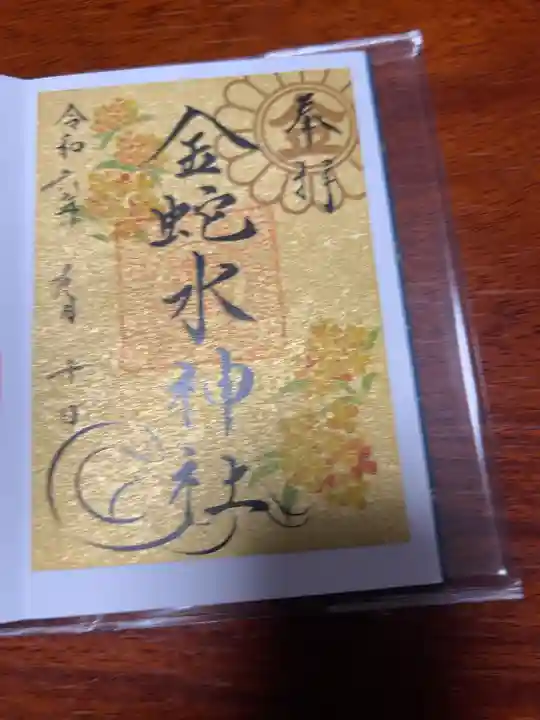 奉拝
金
金蛇水神社
令和六年 九月 十日